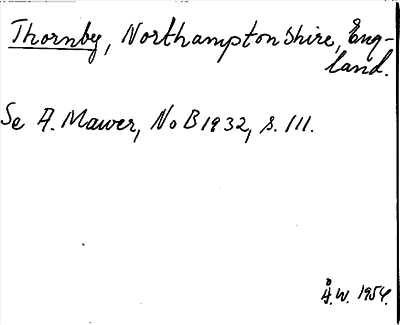 Thornby, Northamptonshire, Eng-
land.
Se A. Mawer, NoB 1932, s. 111.
Å.W. 1954.